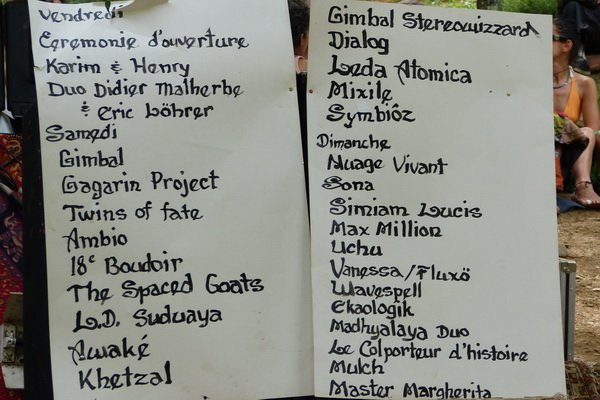 Vendredi
Ceremonie d'ouverture
Karim & Henry
Duo Didier Malherbe
& Eric Löhrer
Samedi
Gimbal
Gagarin Project
Twins of fate
Ambio
18e Boudoir
The Spaced Goats
L.D. Suduaya
Awaké
Khetzal
Gimbal Stereowizzard
Dialog
Leda Atomica
Mixile
Symbiôz
Dimanche
Nuage Vivant
Sona
Simiam Lucis
Max Million
Uchu
Vanessa/Fluxö
Wavespell
Ekaologik
Madhyalaya Duo
Le Colporteur d'histoire
Mulch
Master Margherita